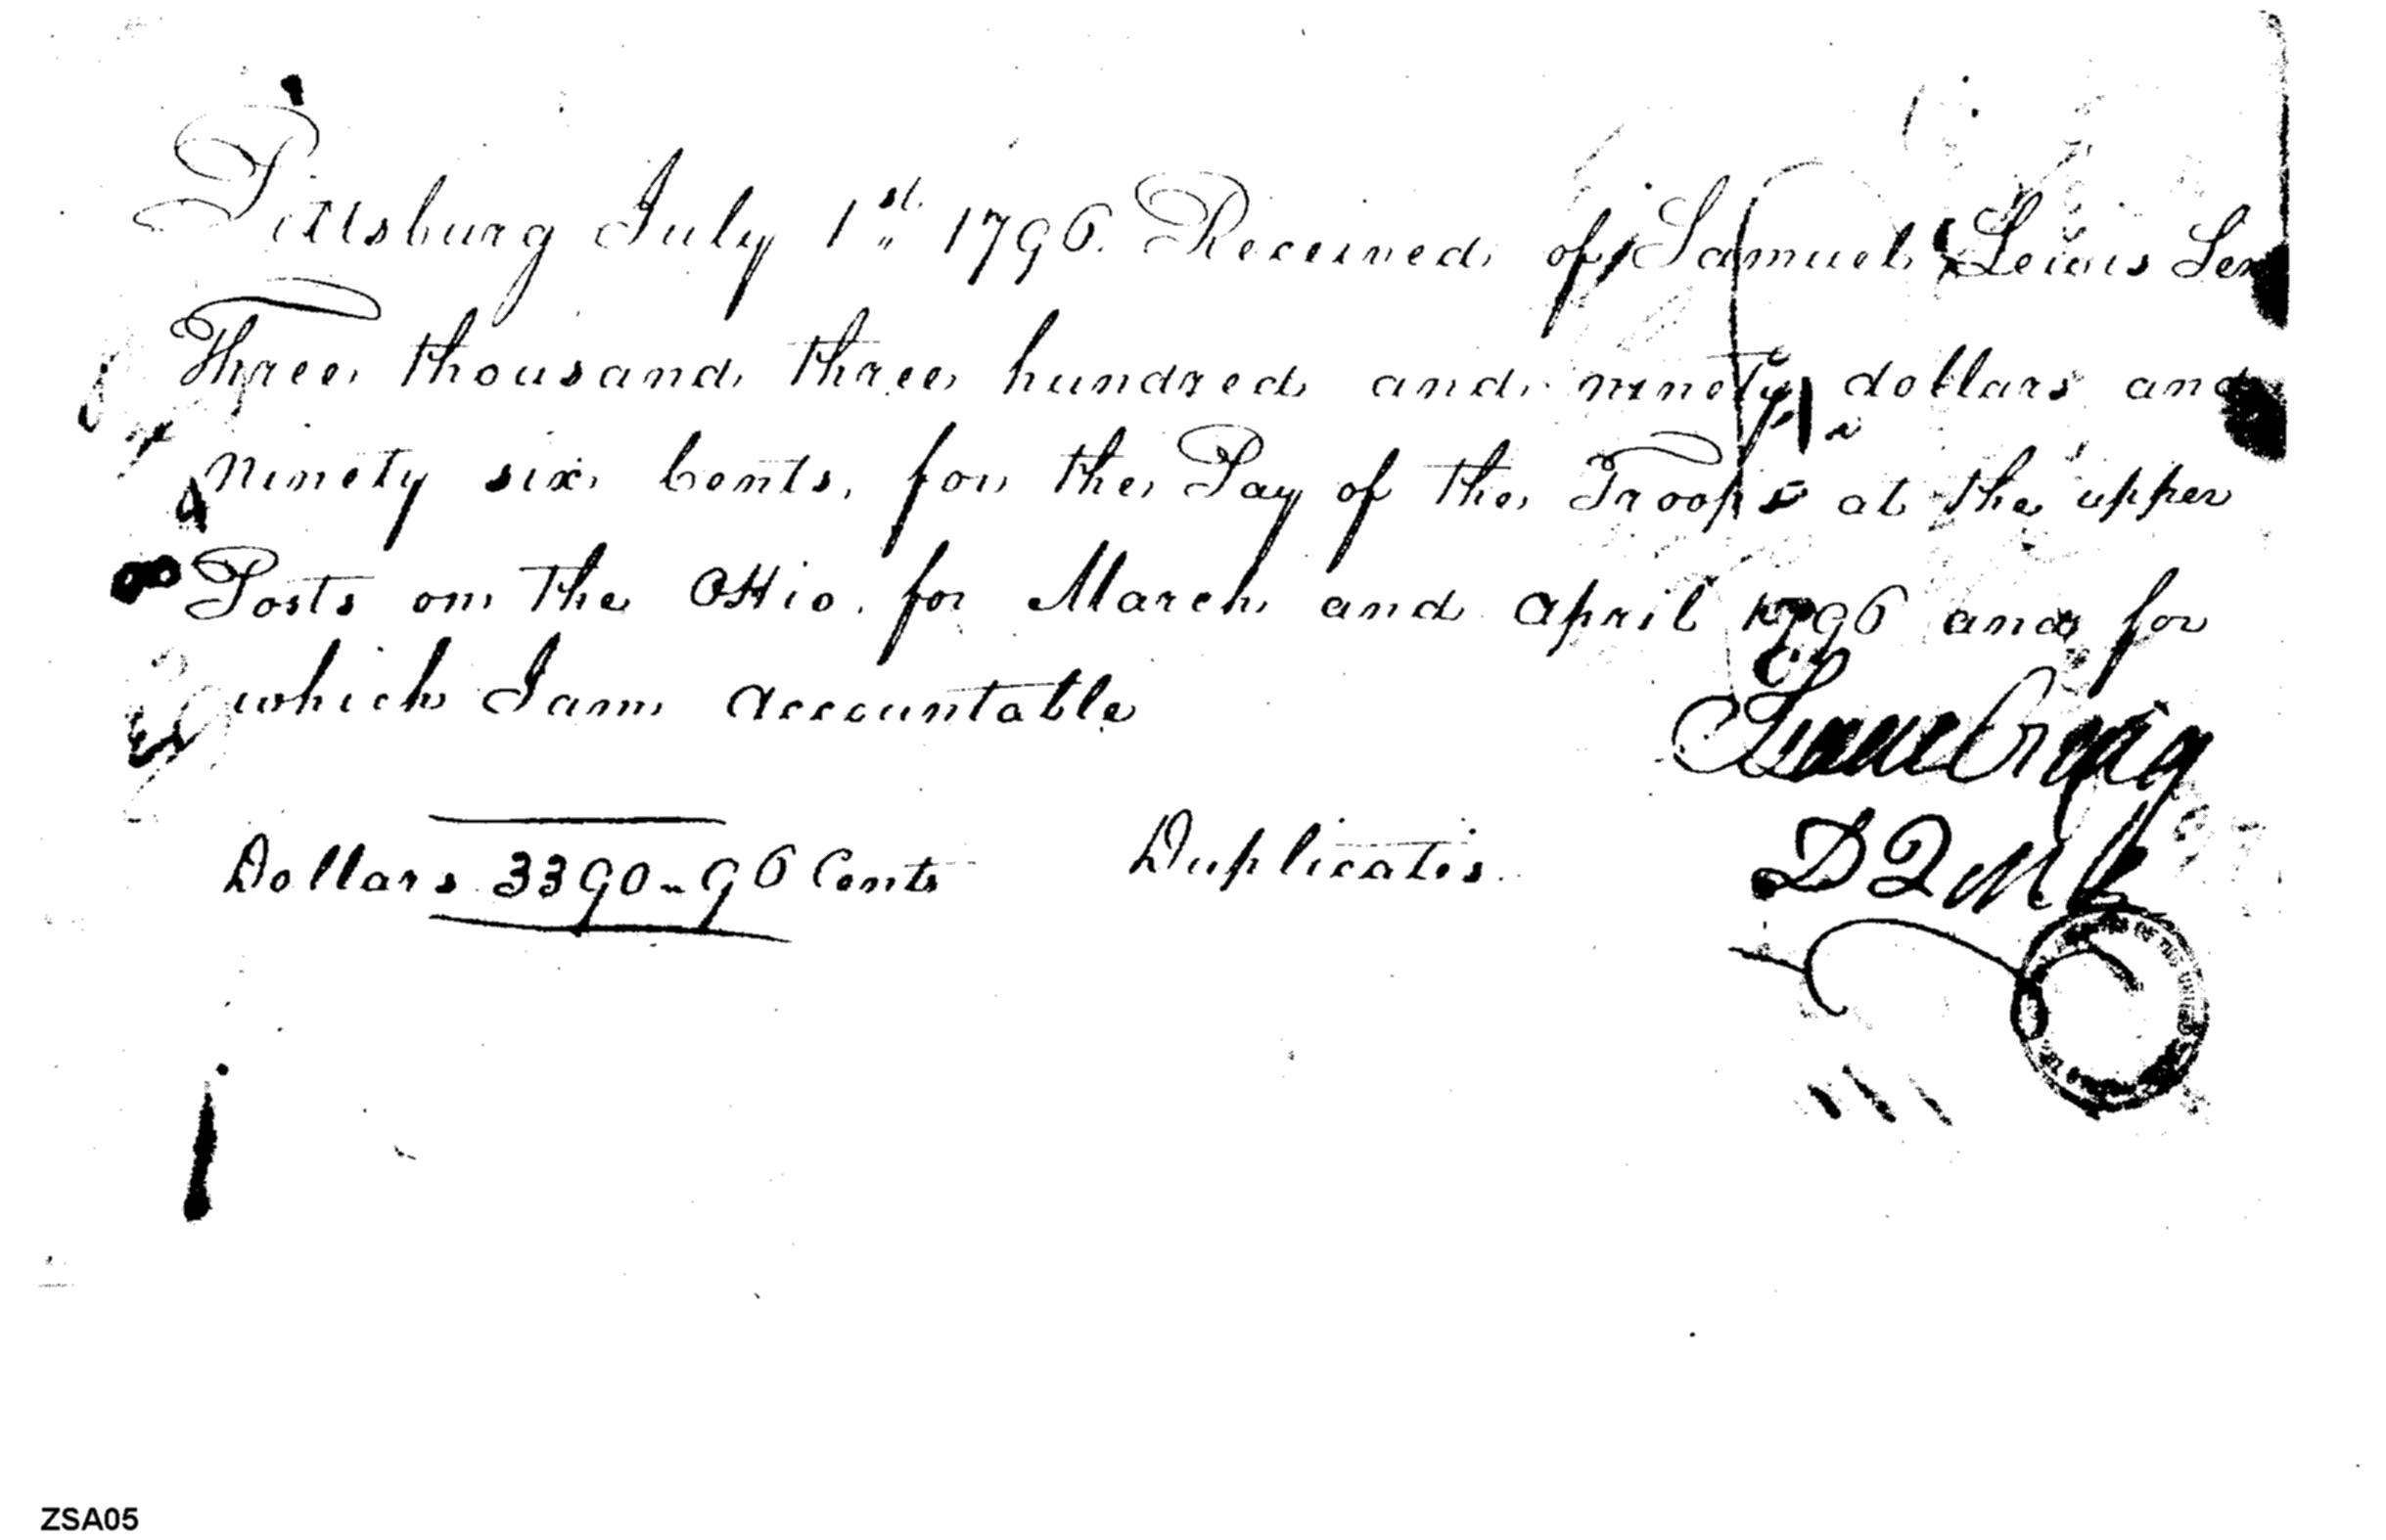 Pittsburg July 1st 1796. Received of Samuel Lewis Sen
Three thousand three hundred and ninety dollars and
ninety six Cents, for the Pay of the Troops at the upper
Posts on the Ohio. for March and April 1796 and for
which I am accountable
Isaac Craig
D Q M G
Dollars 3390-96 Cents Duplicates.
ZSA05